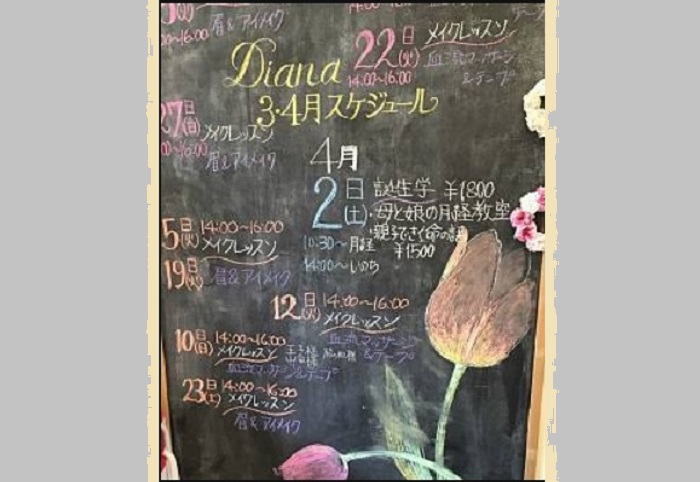 日
眉&アイメイク
14:00~16:00
22日(火)
メイクレッスン
血流マッサージ
&テープ
14:00~16:00
Diana
3・4月スケジュール
27日(日)
メイクレッスン
眉&アイメイク
4月
2日(土)
誕生学 ¥1800
・母と娘の月経教室
・親子で
¥1500
10:30~月経
14:00~いのち
5日(火) 14:00~16:00
メイクレッスン
19日(火) 眉&アイメイク
12日(火) 14:00~16:00
メイクレッスン
血流マッサージ
&テープ
10日(日) 14:00~16:00
メイクレッスン
血流マッサージ&テープ
23日(土) 14:00~16:00
メイクレッスン
眉&アイメイク